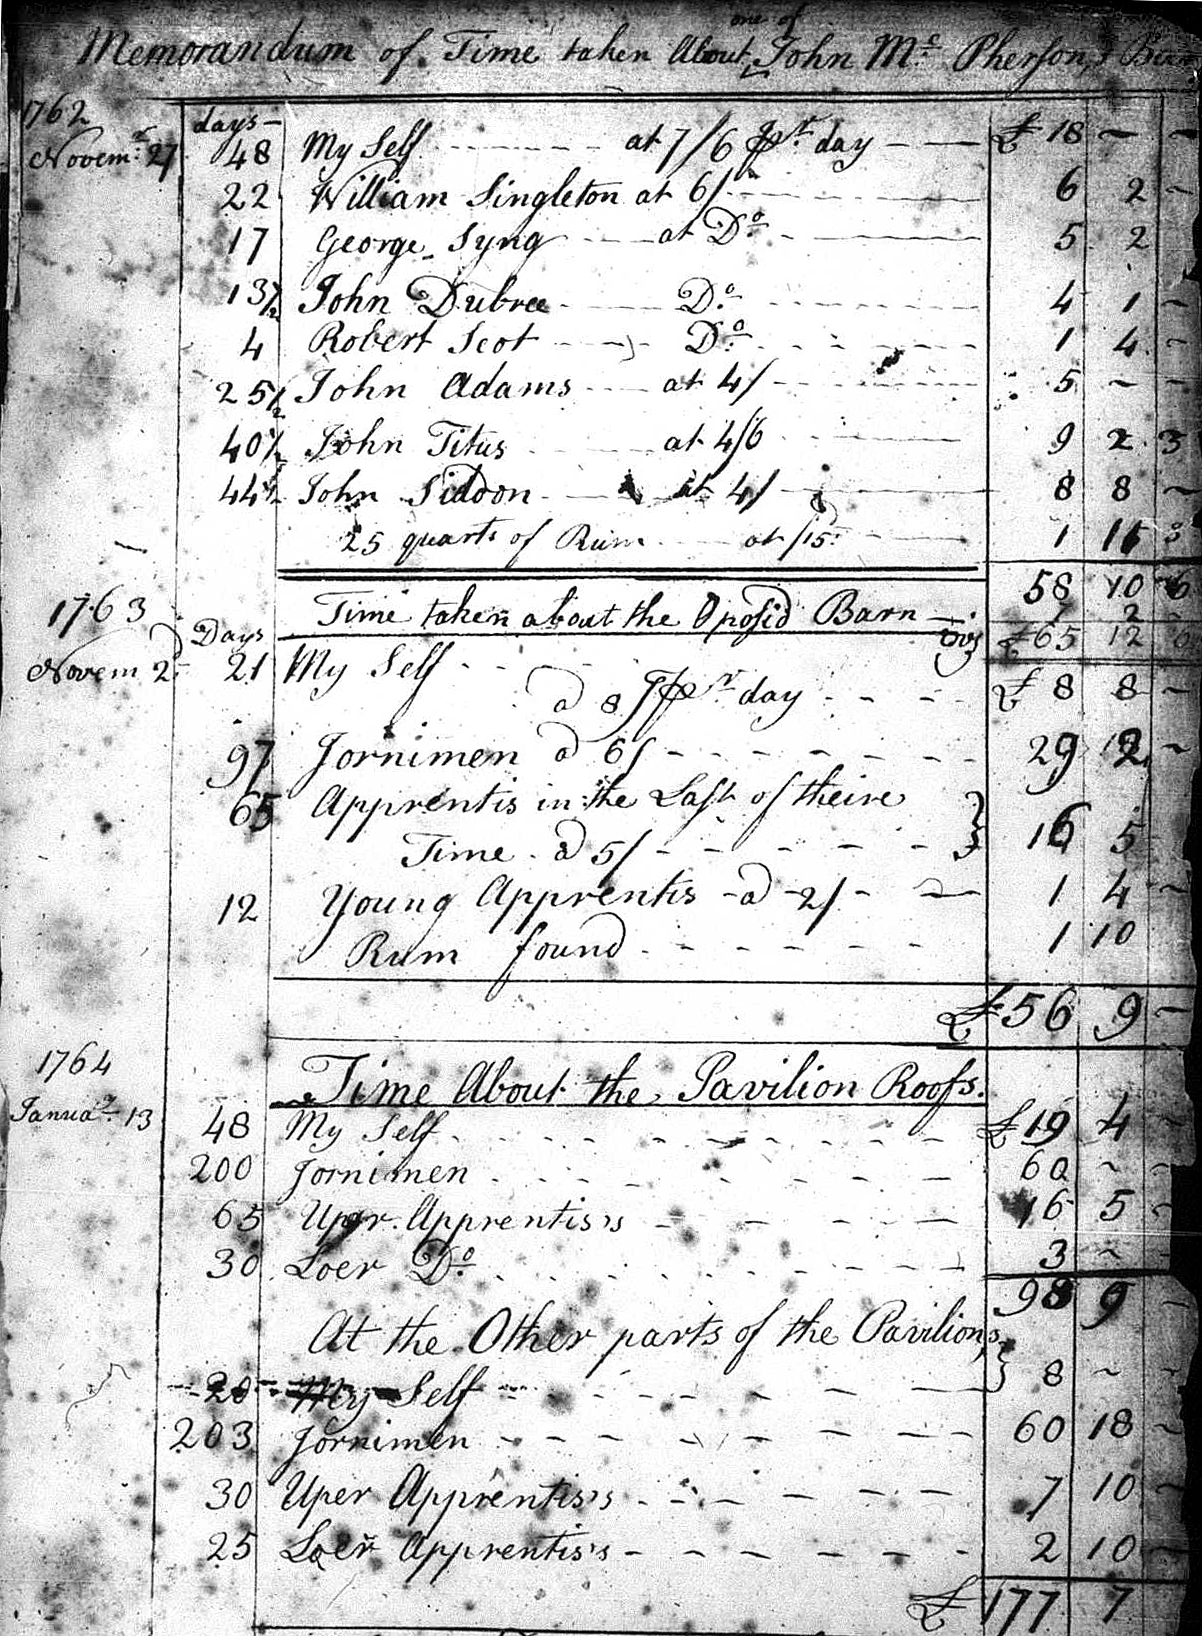 Memorandum of Time taken About one of John Mc. Pherson,s Barn
1762 days
Novemr. 27 48 My Self at 7/6 Pr. day £ 18 - -
22 William Singleton at 6/ 6 2 -
17 George Syng at Do. 5 2
13½ John Dubree Do. 4 1 -
4 Robert Scot Do. 1 4 -
25½ John Adams at 4/ 5 - -
40½ John Titus at 4/6 9 2 3
44½ John Siddon at 4/ 8 8 -
25 quarts of Rum at /15d 1 11 3
58 10 6
1763 Time taken about the Oposid Barn 2 -
Days £65 12
Novem 2d. 21 My Self
a 8/ Pr day £ 8 8 -
97 Jornimen a 6/ 29 12 -
65 Apprentis in the Last of theire
Time a 5/ 16 5
12 Young Apprentis a 2/ 1 4 -
Rum found 1 10
£56 9 -
1764 Time About the Pavilion Roofs.
Januay. 13 48 My Self £19 4 -
200 Jornimen 60 - -
65 Uper. Apprentis's 16 5 -
30 Loer Do. 3 - -
98 9
At the Other parts of the Pavilion,s
20 My Self 8 - -
203 Jornimen 60 18 -
30 Uper Apprentis's 7 10 -
25 Loer Apprentis's 2 10 -
£177 7